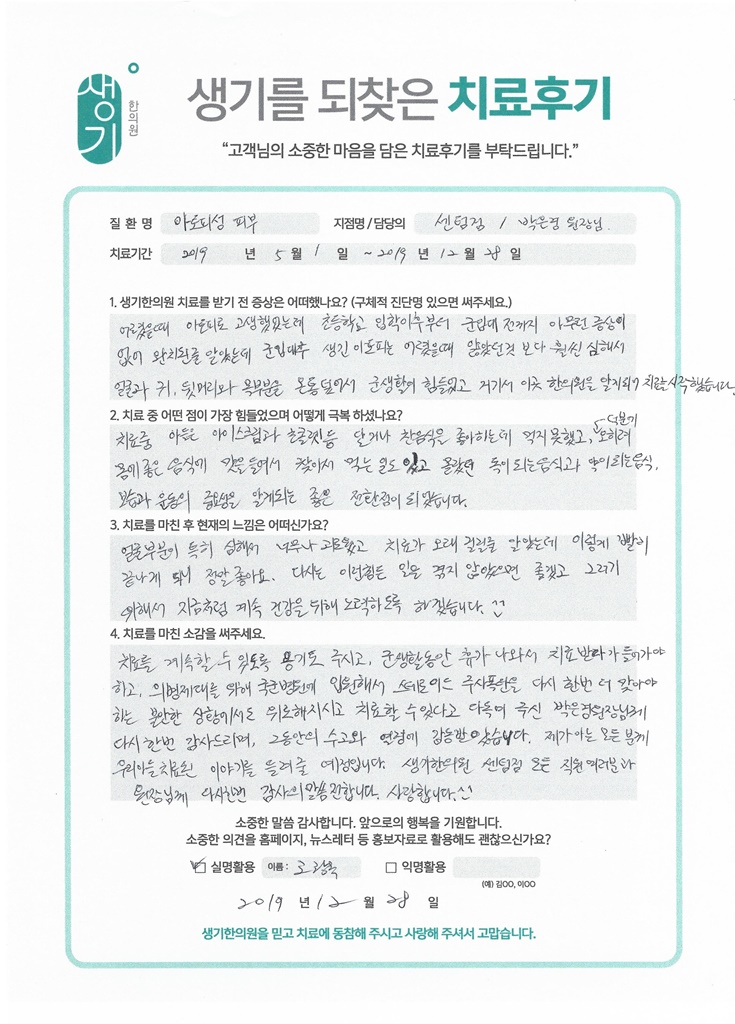 생기
한의원
생기를 되찾은 치료후기
“고객님의 소중한 마음을 담은 치료후기를 부탁드립니다.”
질 환 명 아토피성 피부 지점명 / 담당의 센텀점 / 박은영 원장님
치료기간 2019 년 5 월 1 일 ~ 2019 년 12 월 28 일
1. 생기한의원 치료를 받기 전 증상은 어떠했나요? (구체적 진단명 있으면 써주세요.)
어렸을때 아토피로 고생했었는데 초등학교 입학이후부터 군입대 전까지 아무런 증상이
없어 완치된줄 알았는데 군입대후 생긴 아토피는 어렸을때 앓았던것 보다 훨씬 심해서
얼굴과 귀, 뒷머리와 목부분을 온통 덮어서 군생활이 힘들었고 거기서 이곳 한의원을 알게되어 치료시작했습니다.
2. 치료 중 어떤 점이 가장 힘들었으며 어떻게 극복 하셨나요?
덕분에
치료중 아들은 아이스크림과 초콜렛등 달거나 찬음식을 좋아하는데 먹지 못했고, 오히려
몸에 좋은 음식에 맛을 들여서 찾아서 먹는 일도 있고 몰랐던 독이 되는음식과 약이 되는음식,
보습과 운동의 중요성을 알게되는 좋은 전환점이 되었습니다.
3. 치료를 마친 후 현재의 느낌은 어떠신가요?
얼굴부분이 특히 심해서 너무나 괴로웠고 치료가 오래 걸릴줄 알았는데 이렇게 빨리
끝나게 되니 정말 좋아요. 다시는 이런힘든 일을 겪지 않았으면 좋겠고 그러기
위해서 지금처럼 계속 건강을 위해 노력하도록 하겠습니다. ^^
4. 치료를 마친 소감을 써주세요.
치료를 계속할 수 있도록 용기도 주시고, 군생활동안 휴가 나와서 치료받다가 들어가야
하고, 의병제대를 위해 국군병원에 입원해서 스테로이드 주사폭탄을 다시 한번 더 맞아야
하는 불안한 상황에서도 위로해주시고 치료할 수 있다고 다독여 주신 박은영원장님께
다시한번 감사드리며, 그동안의 수고와 열정에 감동받았습니다. 제가 아는 모든 분께
우리아들 치료된 이야기를 들려줄 예정입니다. 생기한의원 센텀점 모든 직원 여러분과
원장님께 다시한번 감사의말씀 전합니다. 사랑합니다.^^
소중한 말씀 감사합니다. 앞으로의 행복을 기원합니다.
소중한 의견을 홈페이지, 뉴스레터 등 홍보자료로 활용해도 괜찮으신가요?
실명활용 이름 : 익명활용
(예) 김OO, 이OO
2019 년 12 월 28 일
생기한의원을 믿고 치료에 동참해 주시고 사랑해 주셔서 고맙습니다.